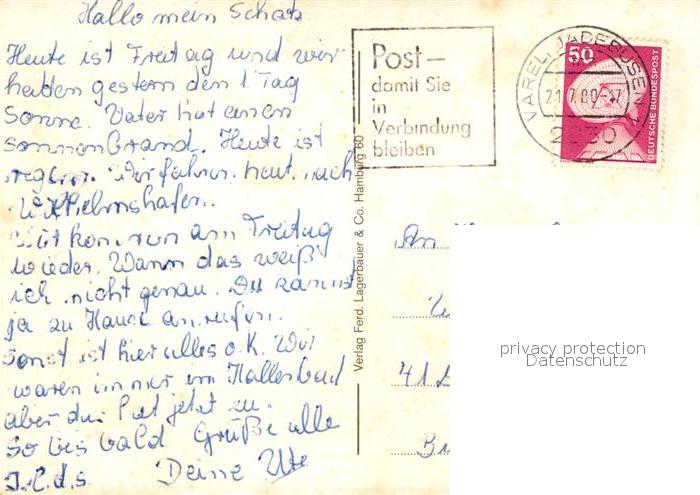 Hallo mein Schatz
Heute ist Freitag und wir
haben gestern den 1. Tag
Sonne. Vater hat einen
Sonnenbrand. Heute ist
regen. Wir fahren heut nach
Wilhelmshafen.
Wir kommen am Freitag
wieder. Wann das weiß
ich nicht genau. Du kannst
ja zu Hause anrufen.
Sonst ist hier alles o.K. Wir
waren immer im Hallenbad
aber das hat jetzt zu.
So bis bald Grüße alle
I.l.d.s. Deine Ute
Post–
damit Sie
in
Verbindung
bleiben
VAREL, JADEBUSEN
2930
50
DEUTSCHE BUNDESPOST
Verlag Ferd. Lagerbauer & Co. Hamburg 60
An
41
privacy protection
Datenschutz